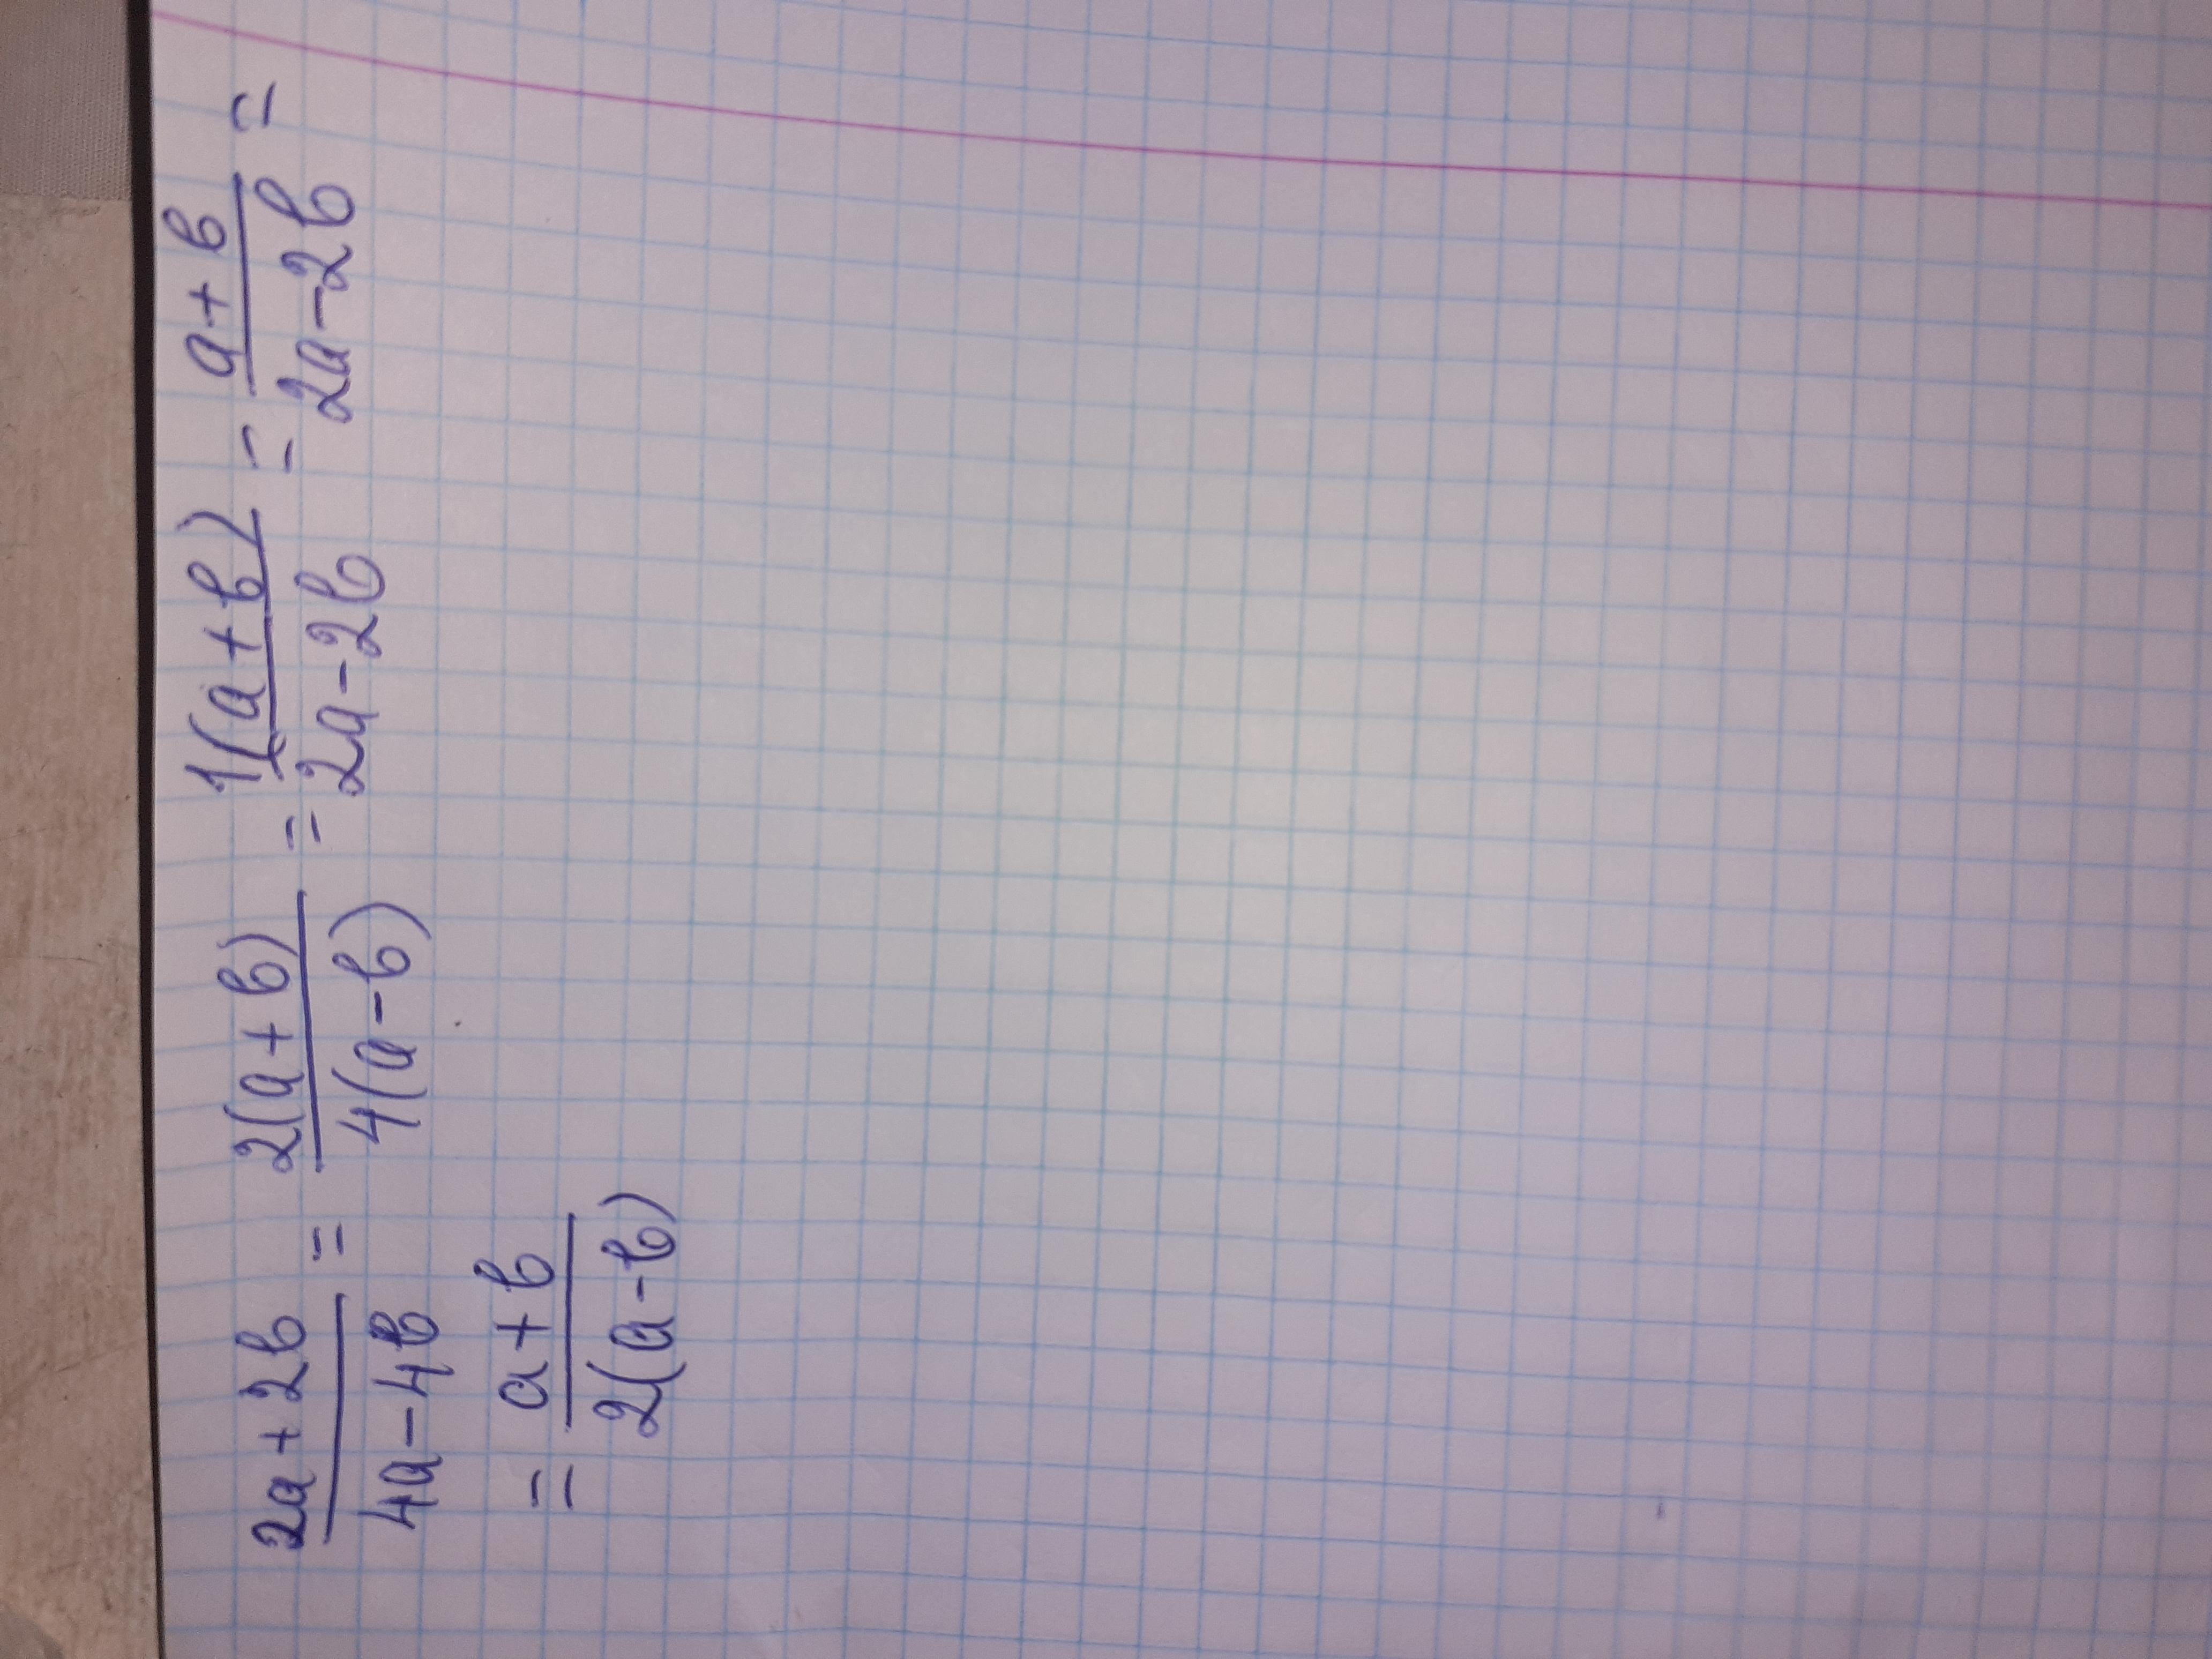 (2a+2b)/(4a-4b) = 2(a+b)/4(a-b) = 1(a+b)/2a-2b = (a+b)/(2a-2b) =
= (a+b)/2(a-b)